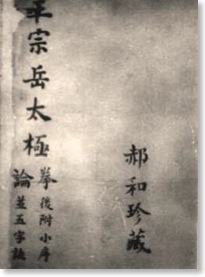 郝和珍藏
王宗岳太極拳論
後附小序
並五字訣